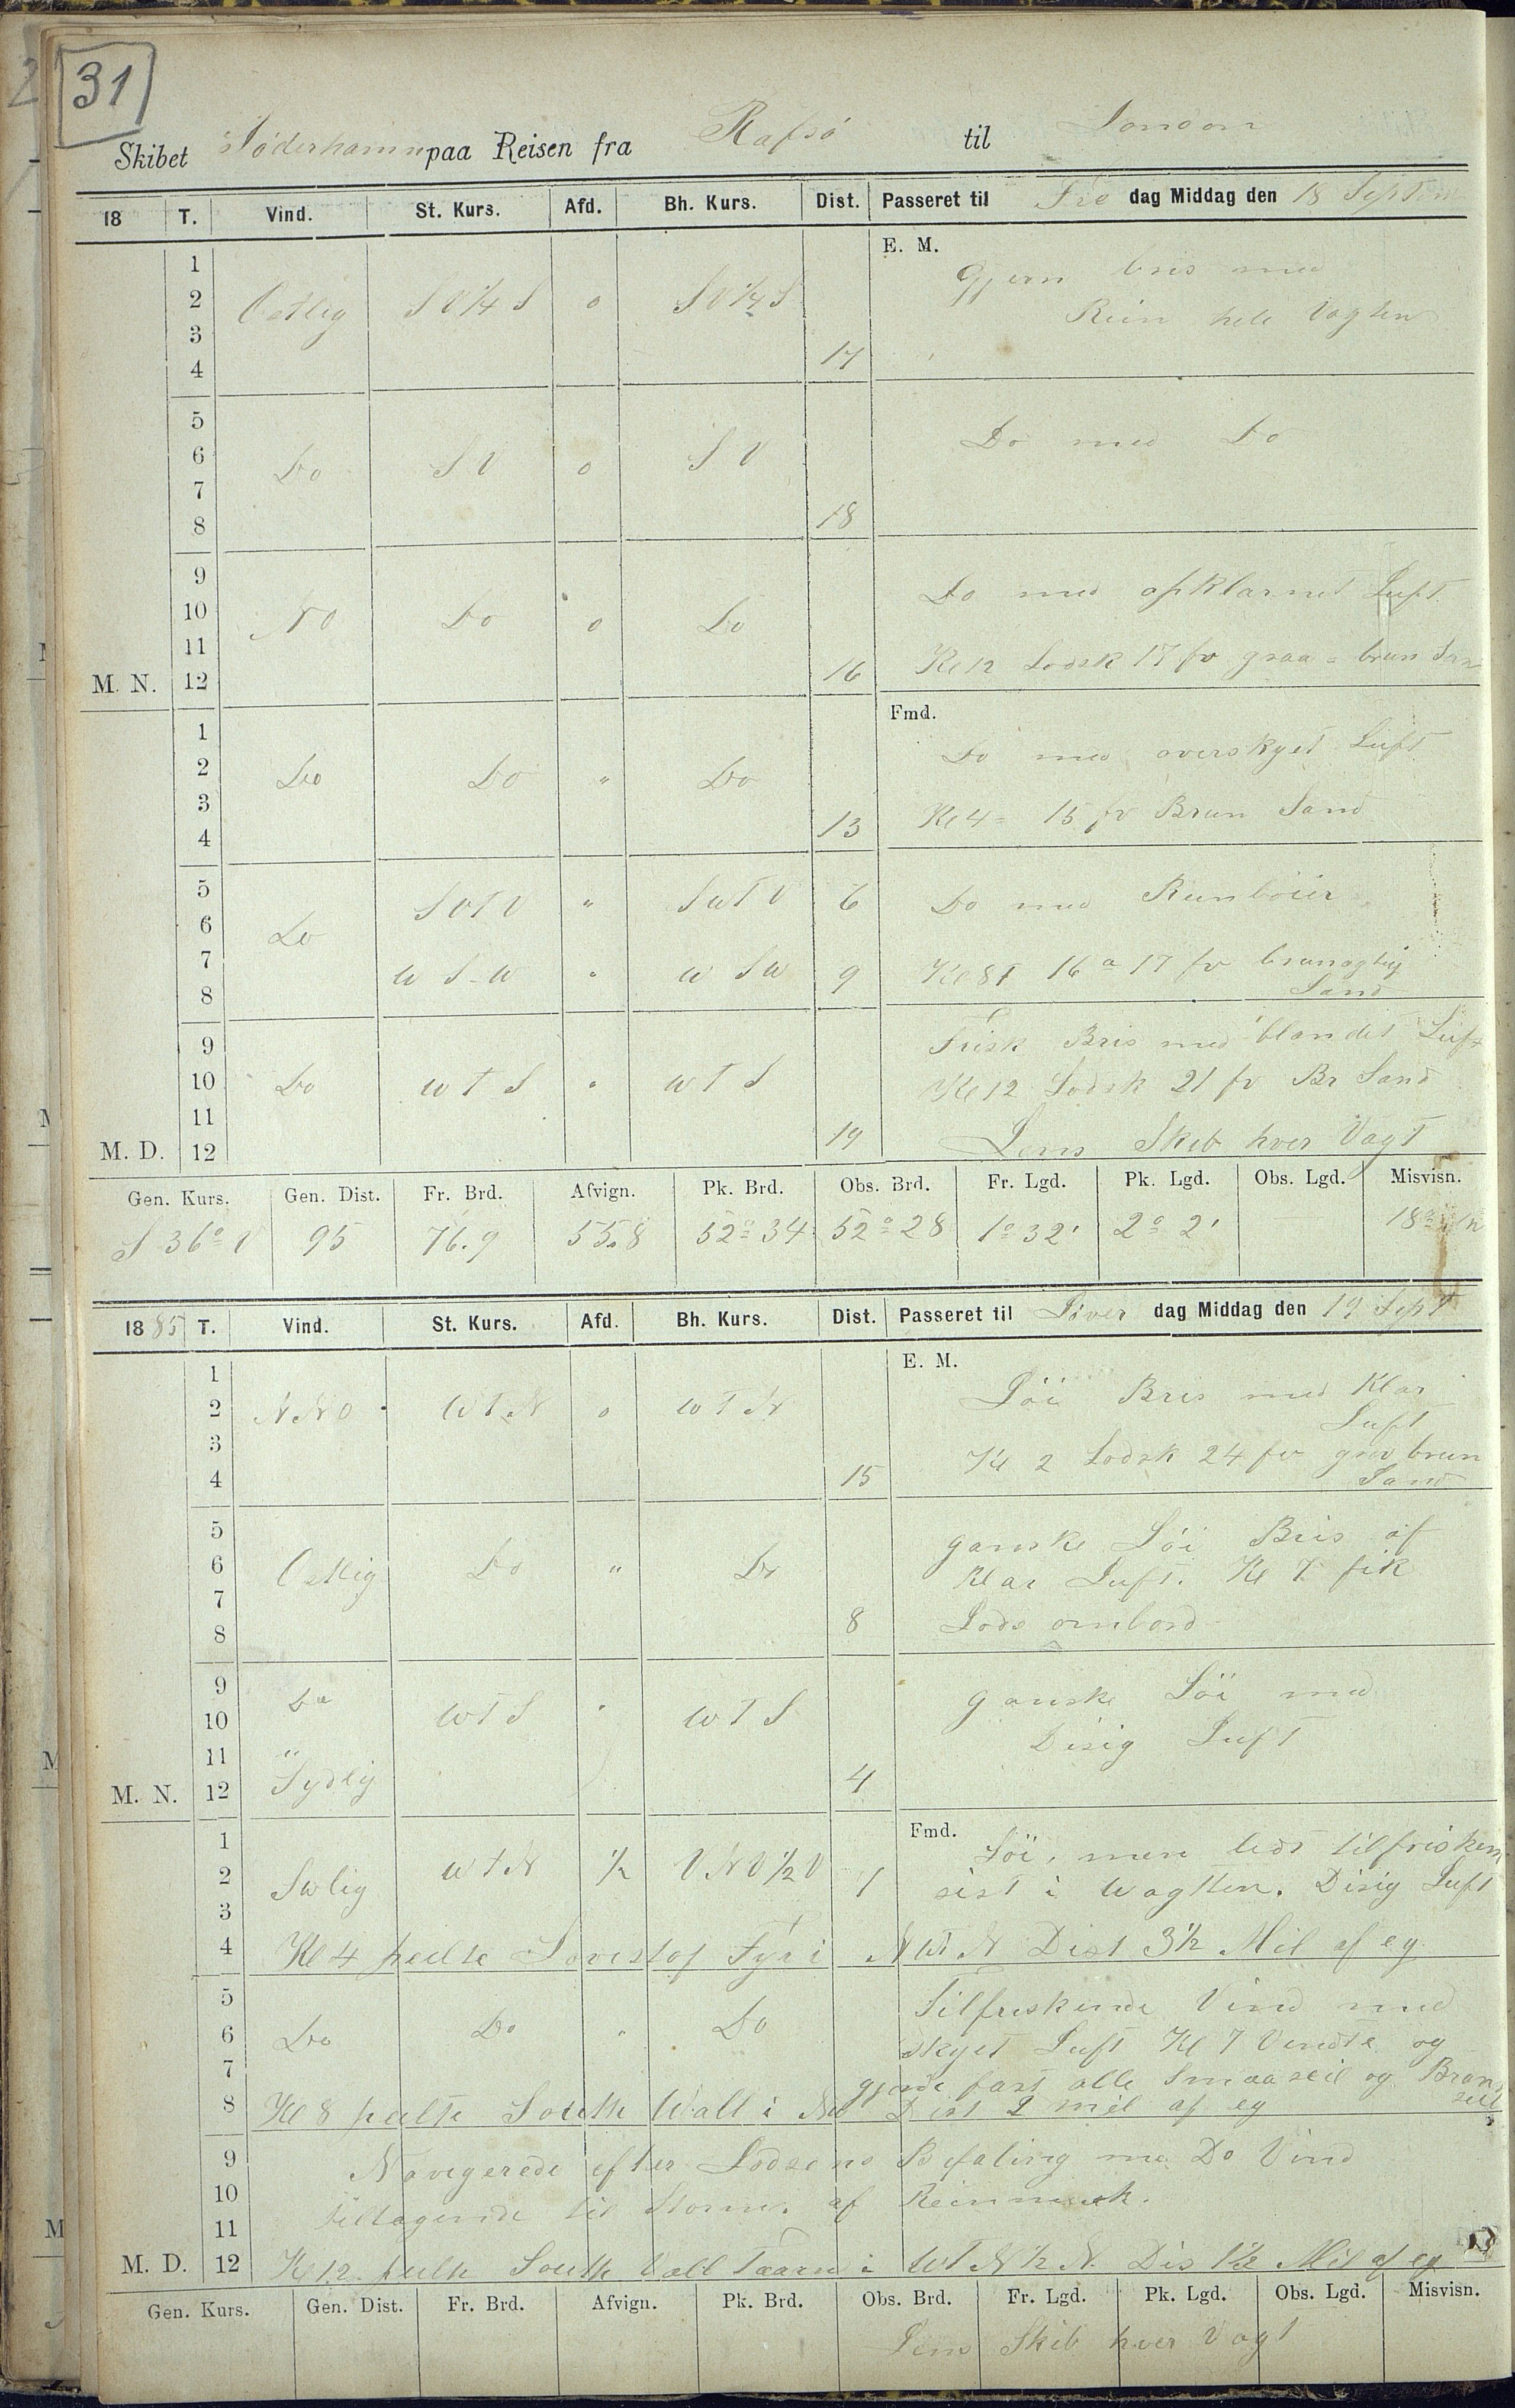 31
Skibet Söderhamn paa Reisen fra Rafsö til London
18 T. Vind. St. Kurs. Afd. Bh. Kurs. Dist. Passeret til Fre dag Middag den 18 Septem
E. M.
1 Gjevn bris med
2 Ostlig S V 1/4 S o S V 1/4 S Rein hele Vagten
3
4 17
5
6 Do S V o S V Do med Do
7
8 18
9 Do med opklarnet Luft
10 N O Do o Do
11
M. N. 12 16 Kl 12 Lodsk 17 fv graa = brun San
Fmd.
1 Do med overskyet Luft
2 Do Do " Do
3
4 13 Kl 4 = 15 fv Brun Sand
5 S V T V " S W T V 6 Do med
6 Do
7 W S W " W S W 9 Kl 8 T 16 a 17 fv brunagtig
8 Sand
9 Frisk Bris med blandet Luft
10 Do W T S " W T S Kl 12 Lodsk 21 fv Br Sand
11
M. D. 12 19 Lens Skib hver Vagt
Gen. Kurs. Gen. Dist. Fr. Brd. Afvign. Pk. Brd. Obs. Brd. Fr. Lgd. Pk. Lgd. Obs. Lgd. Misvisn.
S 36° V 95 76.9 55.8 52° 34 52° 28 1° 32' 2° 2' 18°
1885 T. Vind. St. Kurs. Afd. Bh. Kurs. Dist. Passeret til Löver dag Middag den 19 Sept
E. M.
1 Löi Bris med Klar
2 N N O W T N o W T N Luft
3 Kl 2 Lodsk 24 fv brun
4 15 Sand
5 ganske Löi Bris af
6 Ostlig Do " Do Klar Luft. Kl 7 fik
7
8 8 Lods ombord
9 Do ganske Löi med
10 W T S " W T S Disig Luft
11 "
M. N. 12 Sydlig 4
Fmd.
1 Löi, men lidt tilfrisken
2 S W lig W T N 1/2 V N V 1/2 V 1 sist i Wagten. Disig Luft
3
4 Kl 4 peilte Lovestof Fyr i N W T N Dist 3 1/2 Mil af eg.
5 Tilfriskende Vind med
6 Do Do " Do skyet Luft Kl 7 Vendte og
7 gjorde fast alle Smaaseil og Bram
seil
8 Kl 8 peilte South Wall i NW Dist 2 mil af eg
9 Navigerede efter Lodsens Befaling me Do Vind
10 tiltagende til Storm. af
11
M. D. 12 Kl 12 peilte South Vall Taarn i W T N 1/2 N. Dis 1 1/2 Mil af eg
Gen. Kurs. Gen. Dist. Fr. Brd. Afvign. Pk. Brd. Obs. Brd. Fr. Lgd. Pk. Lgd. Obs. Lgd. Misvisn.
Lens Skib hver Vagt